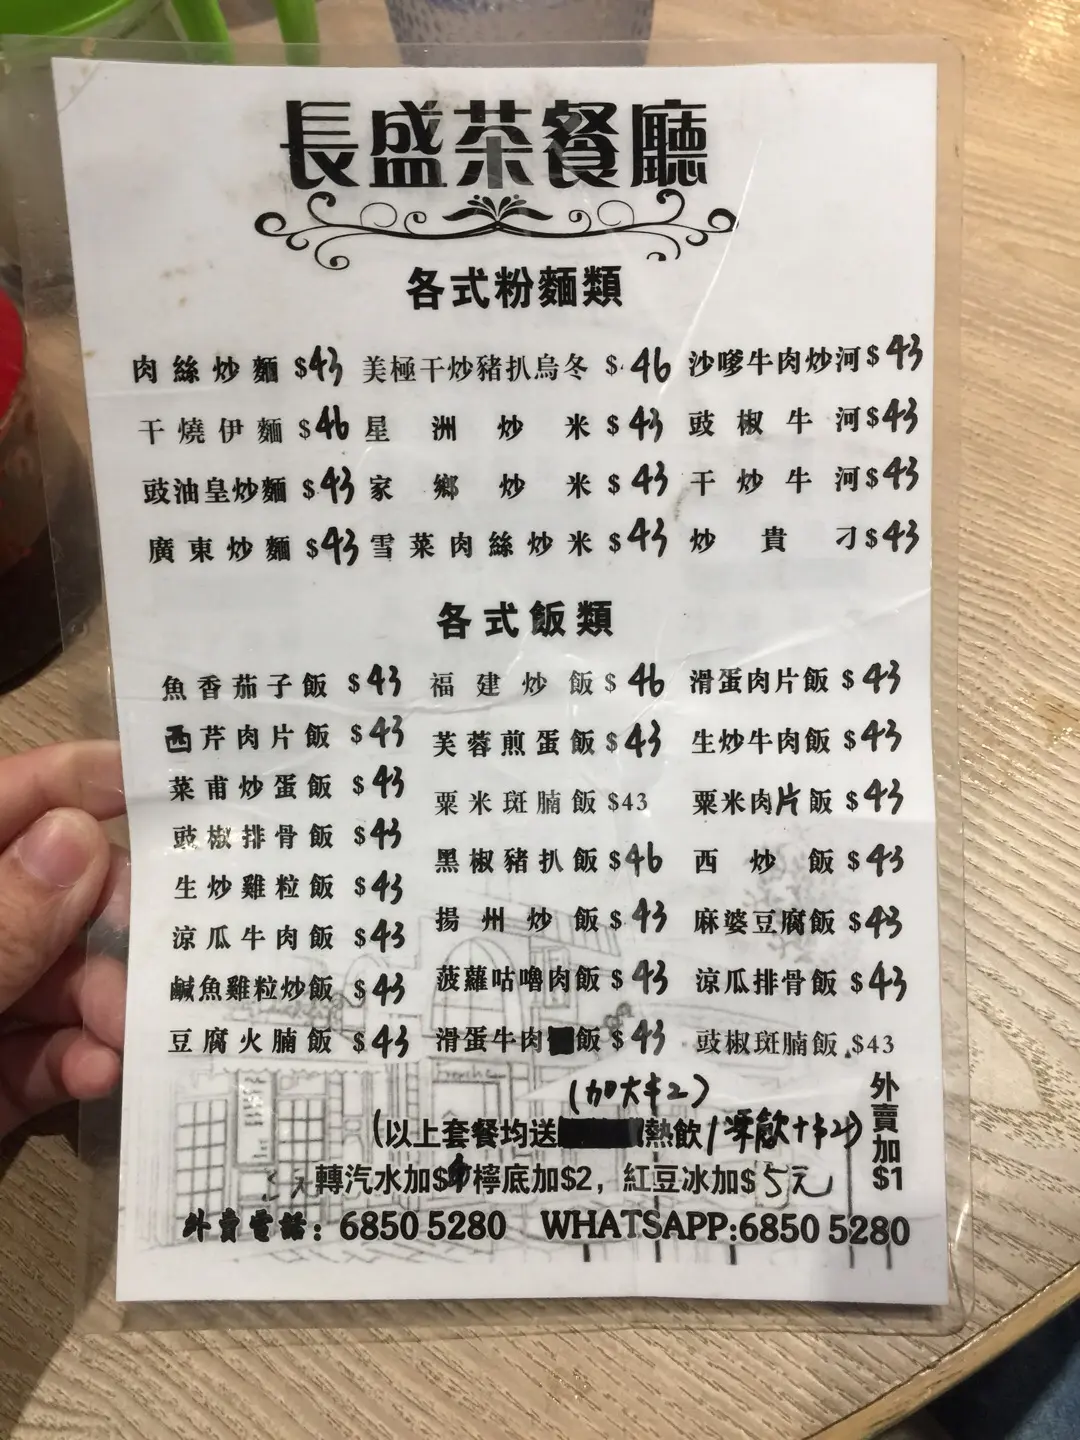 長盛茶餐廳
各式粉麵類
肉絲炒麵 $43 美極干炒豬扒烏冬 $46 沙嗲牛肉炒河 $43
干燒伊麵 $46 星洲炒米 $43 豉椒牛河 $43
豉油皇炒麵 $43 家鄉炒米 $43 干炒牛河 $43
廣東炒麵 $43 雪菜肉絲炒米 $43 炒貴刁 $43
各式飯類
魚香茄子飯 $43 福建炒飯 $46 滑蛋肉片飯 $43
西芹肉片飯 $43 芙蓉煎蛋飯 $43 生炒牛肉飯 $43
菜甫炒蛋飯 $43 粟米斑腩飯 $43 粟米肉片飯 $43
豉椒排骨飯 $43 黑椒豬扒飯 $46 西炒飯 $43
生炒雞粒飯 $43 揚州炒飯 $43 麻婆豆腐飯 $43
涼瓜牛肉飯 $43 菠蘿咕嚕肉飯 $43 涼瓜排骨飯 $43
鹹魚雞粒炒飯 $43 滑蛋牛肉飯 $43 豉椒斑腩飯 $43
豆腐火腩飯 $43
(加大+2)
(以上套餐均送熱飲/凍飲+$2)
轉汽水加$ 檸底加$2, 紅豆冰加$5元
外賣加$1
外賣電話: 6850 5280 WHATSAPP:6850 5280